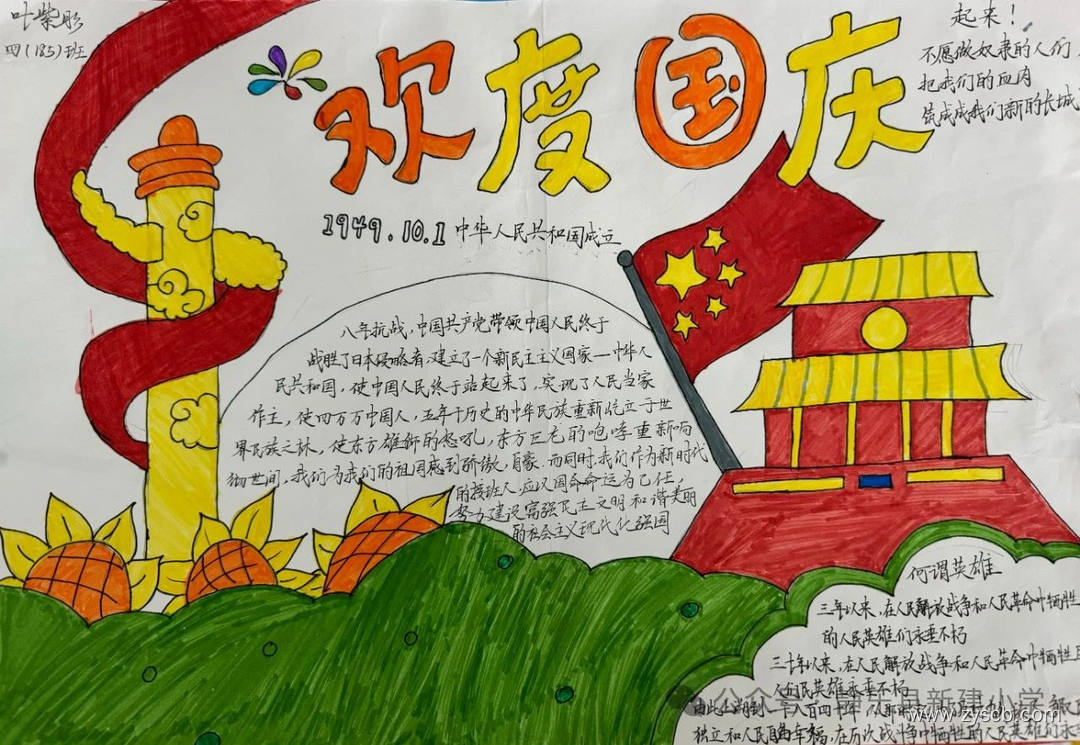 叶紫彤
四(185)班
欢度国庆
起来!
不愿做奴隶的人们
把我们的血肉
筑成我们新的长城
1949.10.1 中华人民共和国成立
八年抗战,中国共产党带领中国人民终于
战胜了日本侵略者,建立了一个新民主主义国家—中华人
民共和国,使中国人民终于站起来了,实现了人民当家
作主,使四万万中国人,五年千历史的中华民族重新屹立于世
界民族之林,使东方雄狮的怒吼,东方巨龙的咆哮重新响
彻世间,我们为我们的祖国感到骄傲,自豪,而同时,我们作为新时代
的接班人,应以国命运为己任,
努力建设富强民主文明和谐美丽
的社会主义现代化强国
何谓英雄
三年以来,在人民解放战争和人民革命中牺牲
的人民英雄们永垂不朽
三十年以来,在人民解放战争和人民革命中牺牲
人们民英雄永垂不朽
由此上溯到一千八百四十年
独立和人民自由幸福,在历次战争中牺牲的人民英雄们永
公众号
县新建小学
www.zyscbr.com